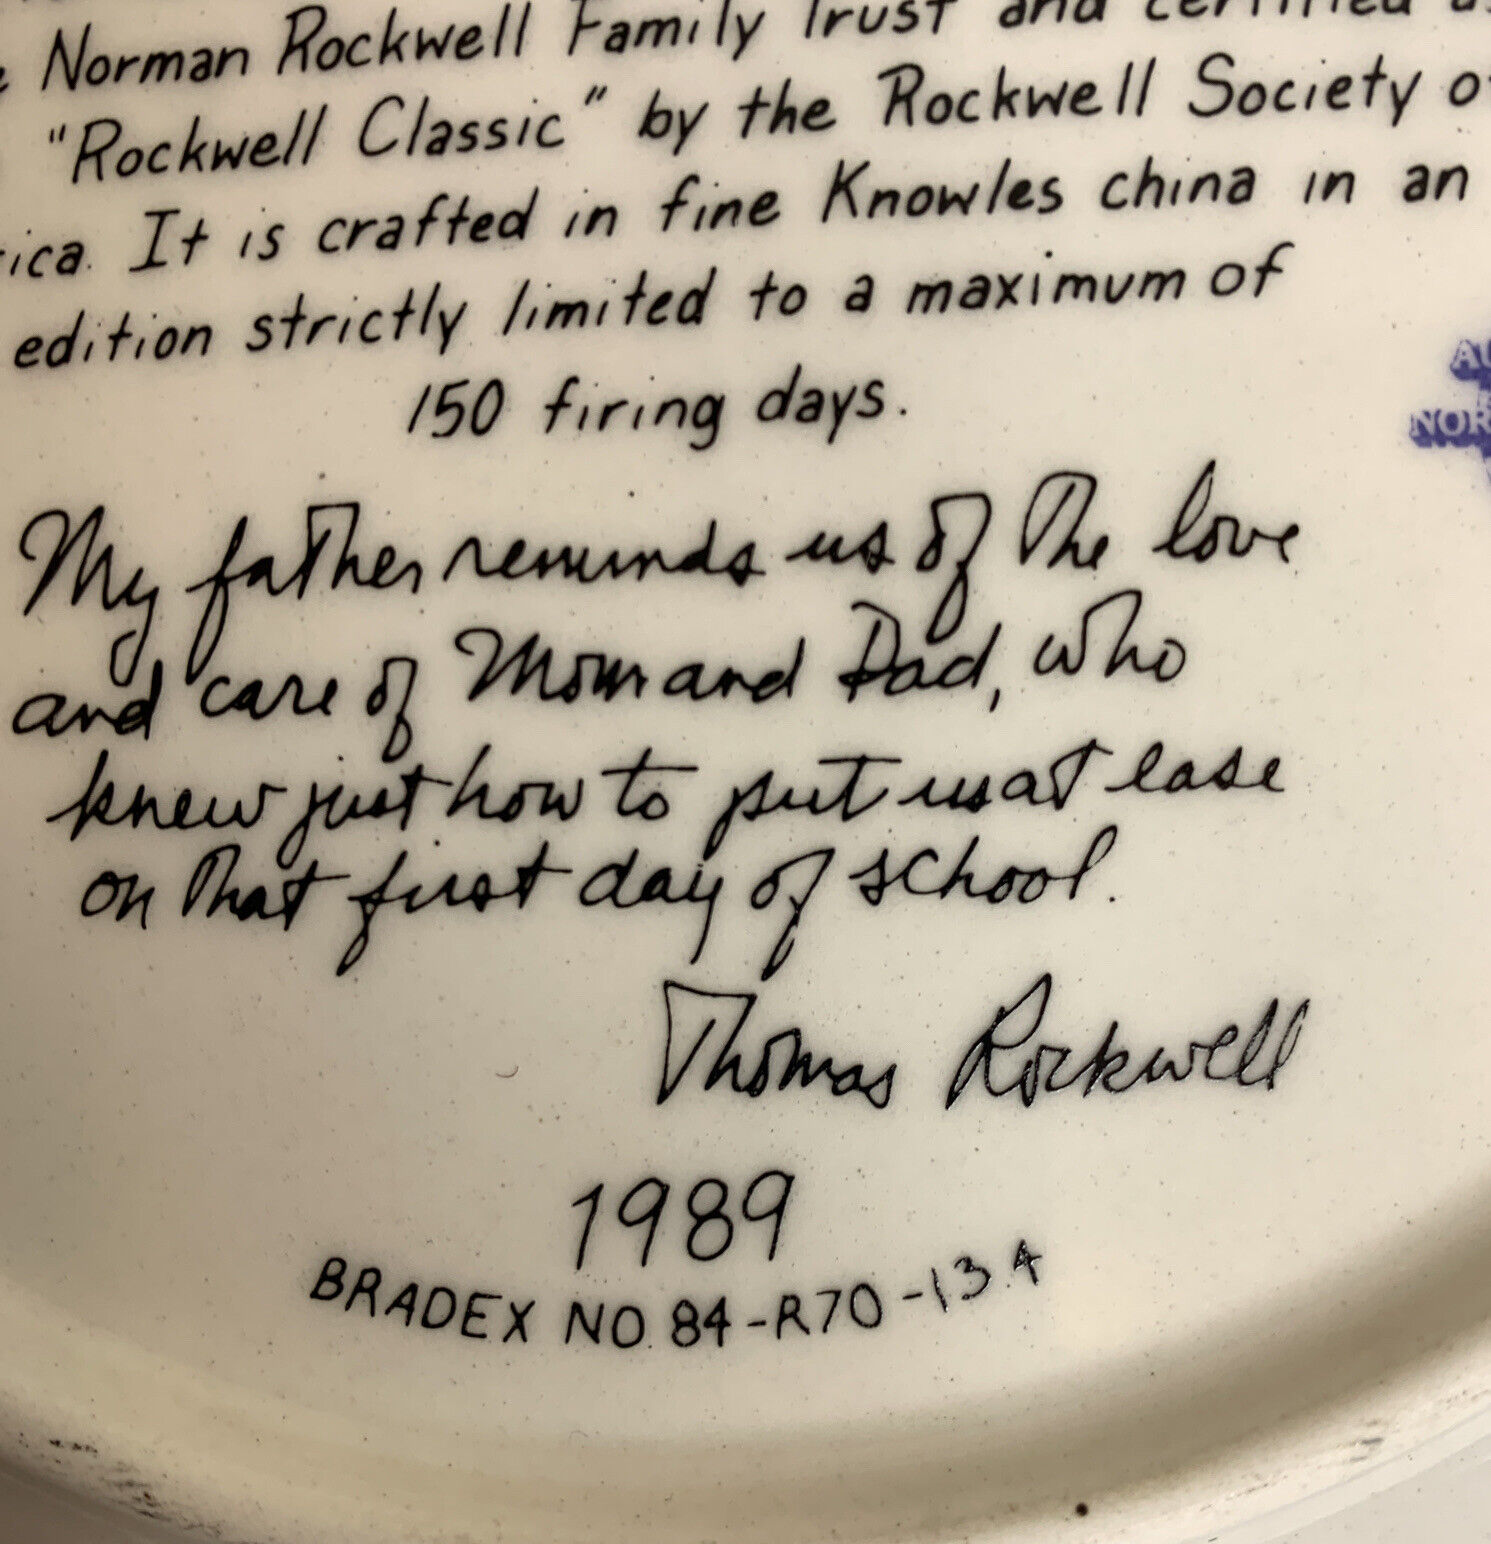 Norman Rockwell Family Trust and certified
"Rockwell Classic" by the Rockwell Society of
ica. It is crafted in fine Knowles china in an
edition strictly limited to a maximum of
150 firing days.
NOR
My father reminds us of the love
and care of Mom and Dad, who
knew just how to put us at ease
on that first day of school.
Thomas Rockwell
1989
BRADEX NO. 84-R70-13.4